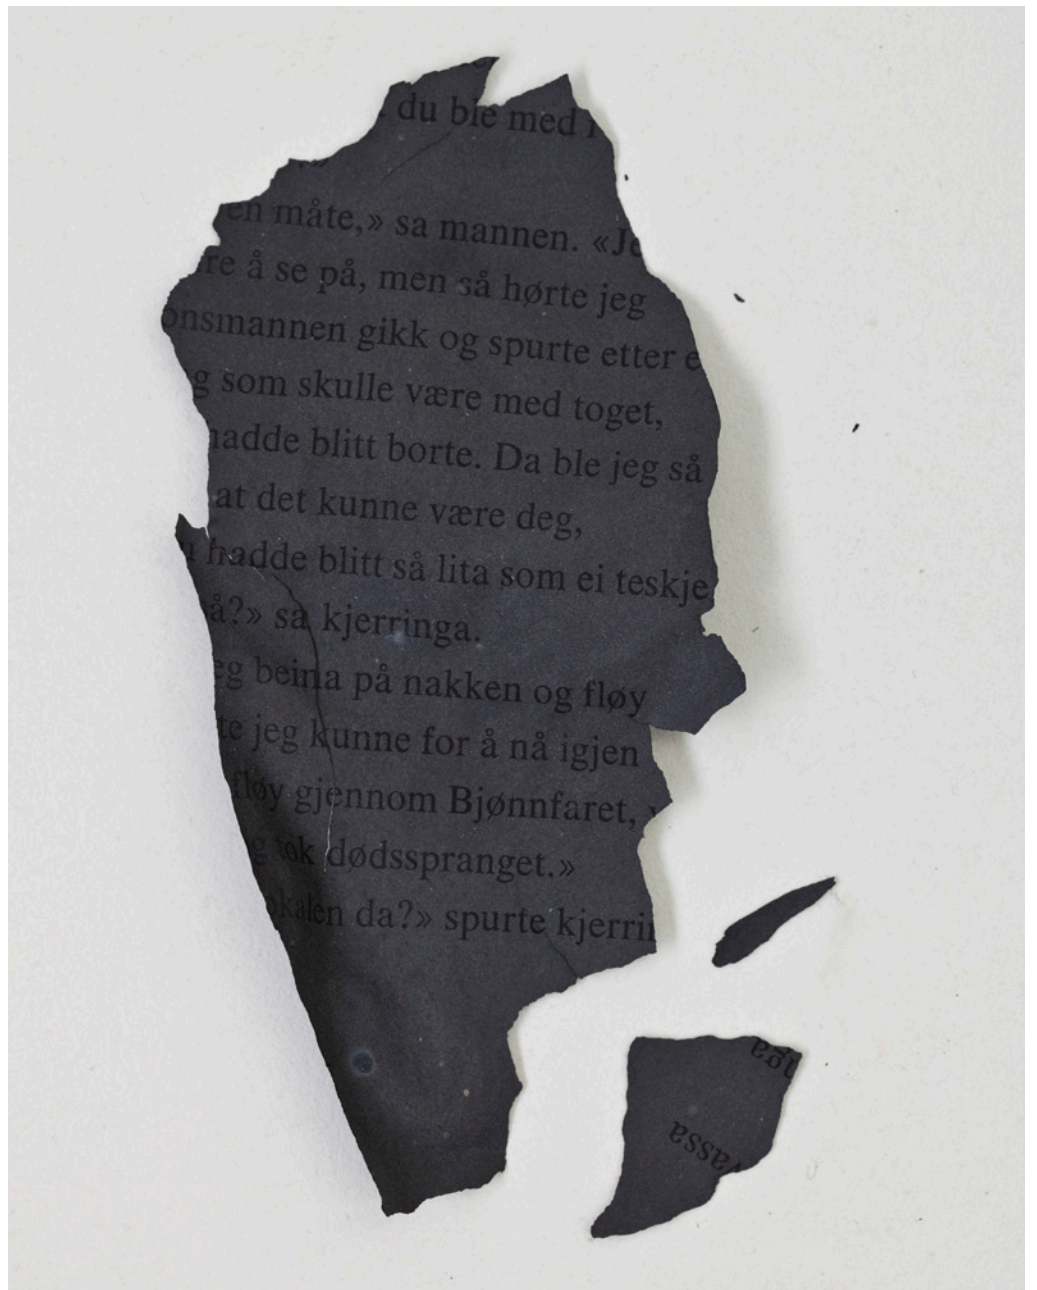 du ble med
en måte,» sa mannen. «Je
re å se på, men så hørte jeg
onsmannen gikk og spurte etter e
g som skulle være med toget,
hadde blitt borte. Da ble jeg så
at det kunne være deg,
u hadde blitt så lita som ei teskje
så?» sa kjerringa.
eg beina på nakken og fløy
te jeg kunne for å nå igjen
fløy gjennom Bjønnfaret, v
g tok dødsspranget.»
okalen da?» spurte kjerrin
vassa